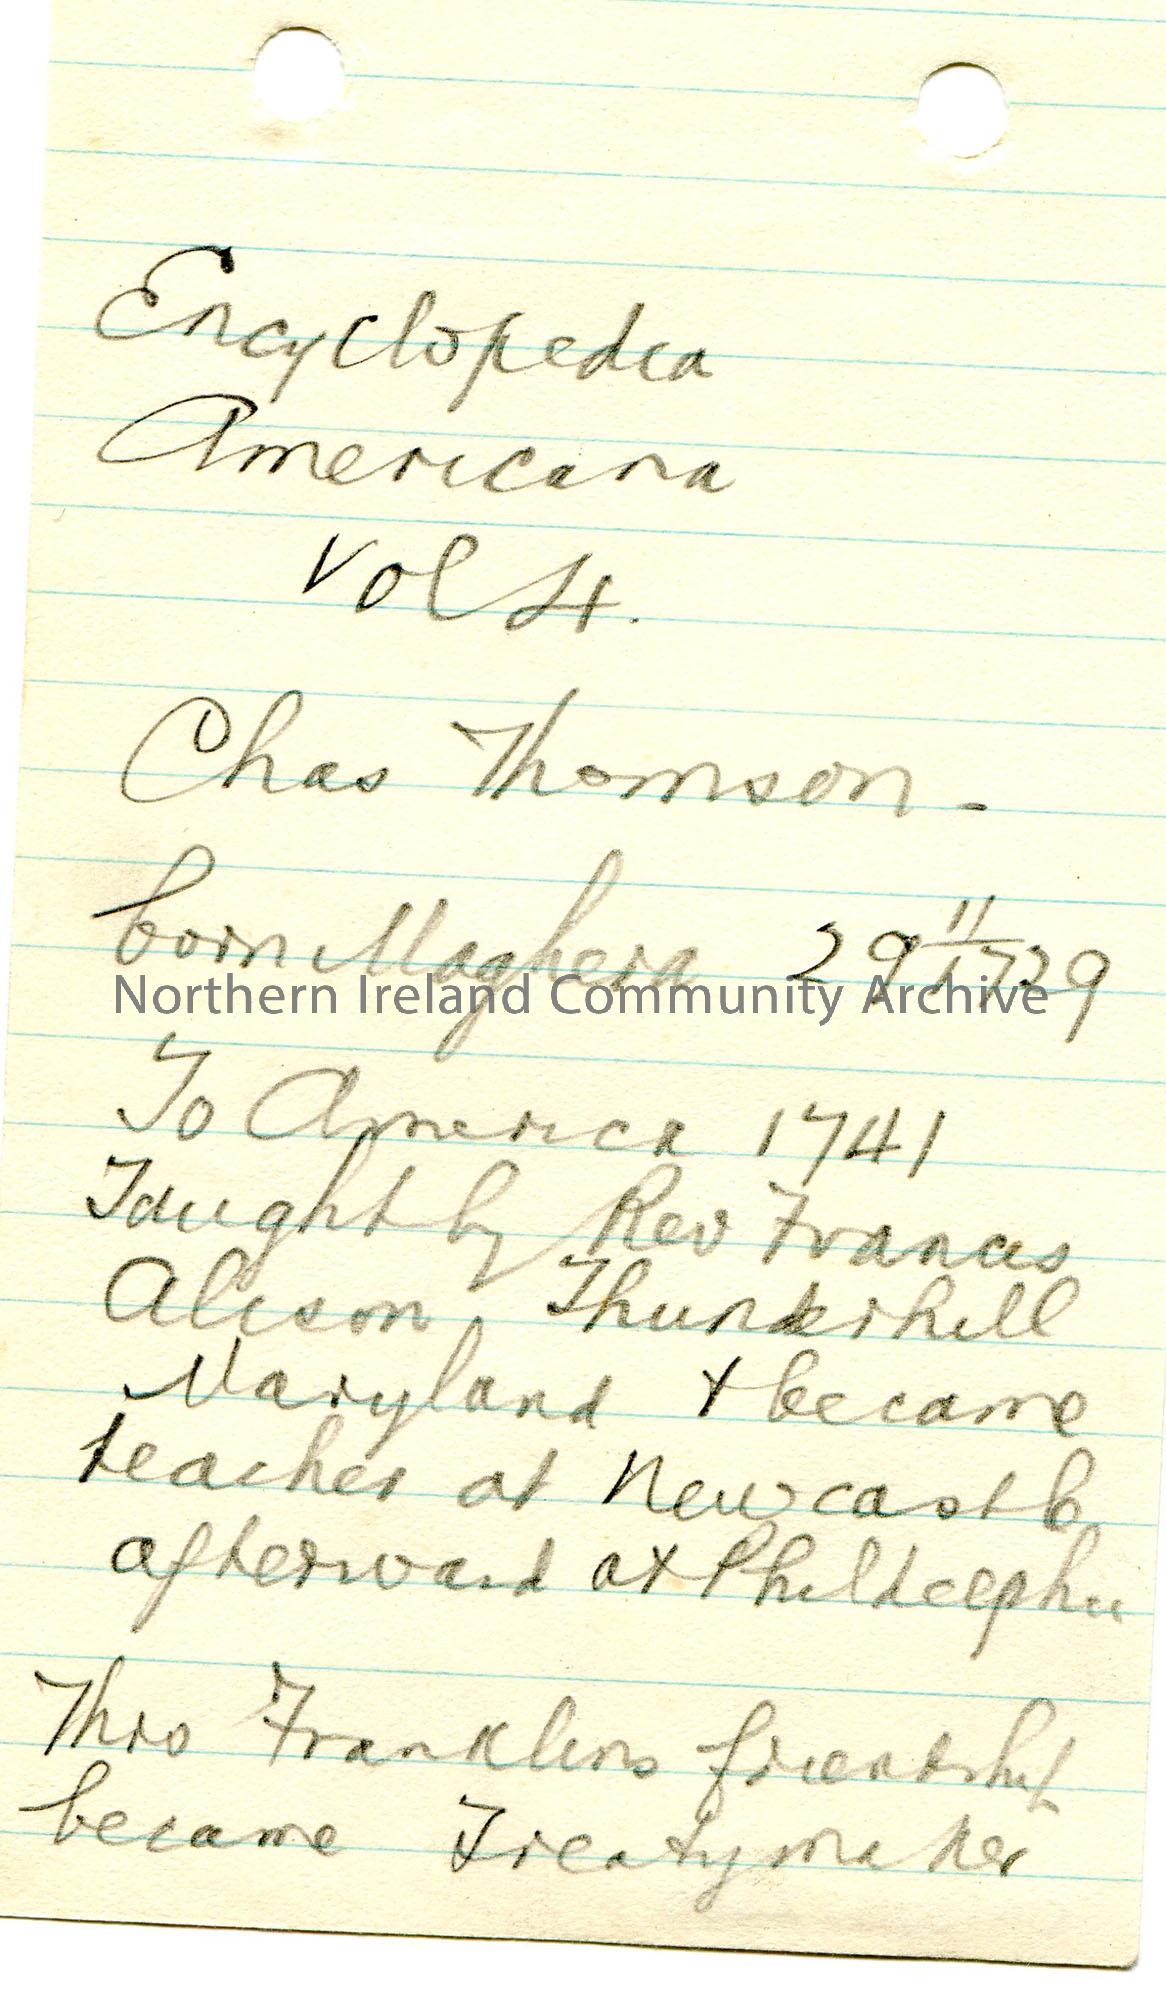 Encyclopedia
Americana
Vol 4.
Chas Thomson -
born Maghera 29 11/1729
Northern Ireland Community Archive
To America 1741
Taught by Rev Francis
Alison, Thunderhill
Maryland & became
teacher at Newcastle
afterward at Phildelphia
Thro Franklins friendship
became Treatymaker